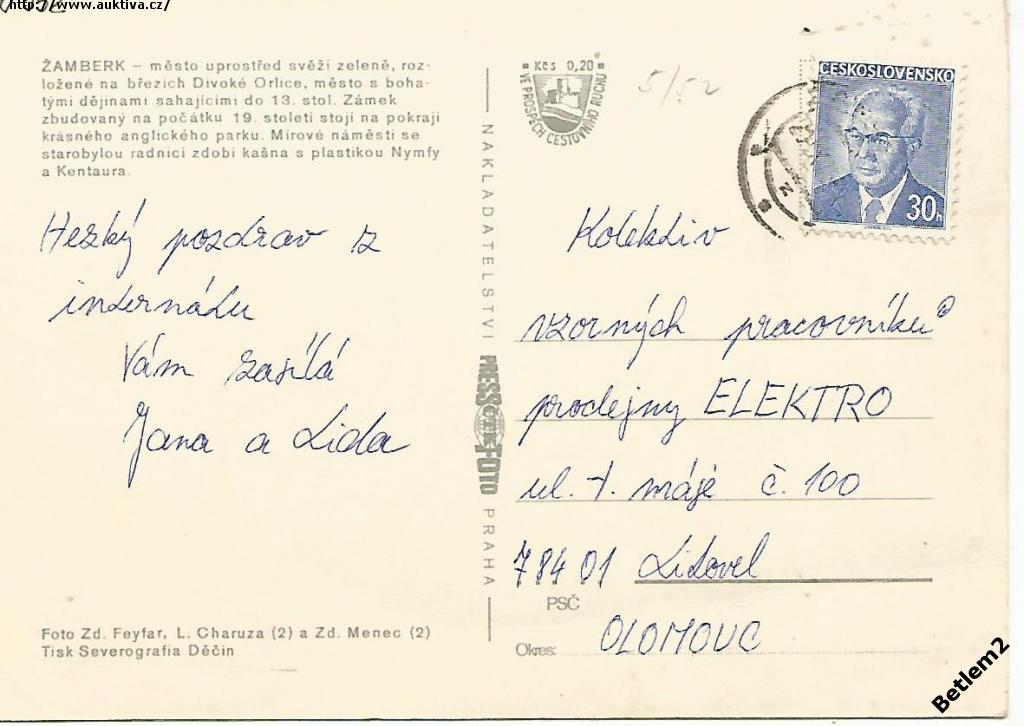 http://www.auktiva.cz/
ŽAMBERK – město uprostřed svěží zeleně, roz-
ložené na březích Divoké Orlice, město s boha-
tými dějinami sahajícími do 13. stol. Zámek
zbudovaný na počátku 19. století stojí na pokraji
krásného anglického parku. Mírové náměstí se
starobylou radnicí zdobí kašna s plastikou Nymfy
a Kentaura.
Hezký pozdrav z
internátu
Vám zasílá
Jana a Lida
Foto Zd. Feyfar, L. Charuza (2) a Zd. Menec (2)
Tisk Severografia Děčín
NAKLADATELSTVÍ PRESSFOTO PRAHA
Kčs 0,20
VE PROSPĚCH CESTOVNÍHO RUCHU
5/52
ČESKOSLOVENSKO
30h
Kolektiv
vzorných pracovníků
prodejny ELEKTRO
ul. 1. máje č. 100
784 01 Litovel
PSČ
Okres: OLOMOUC
Betlem2